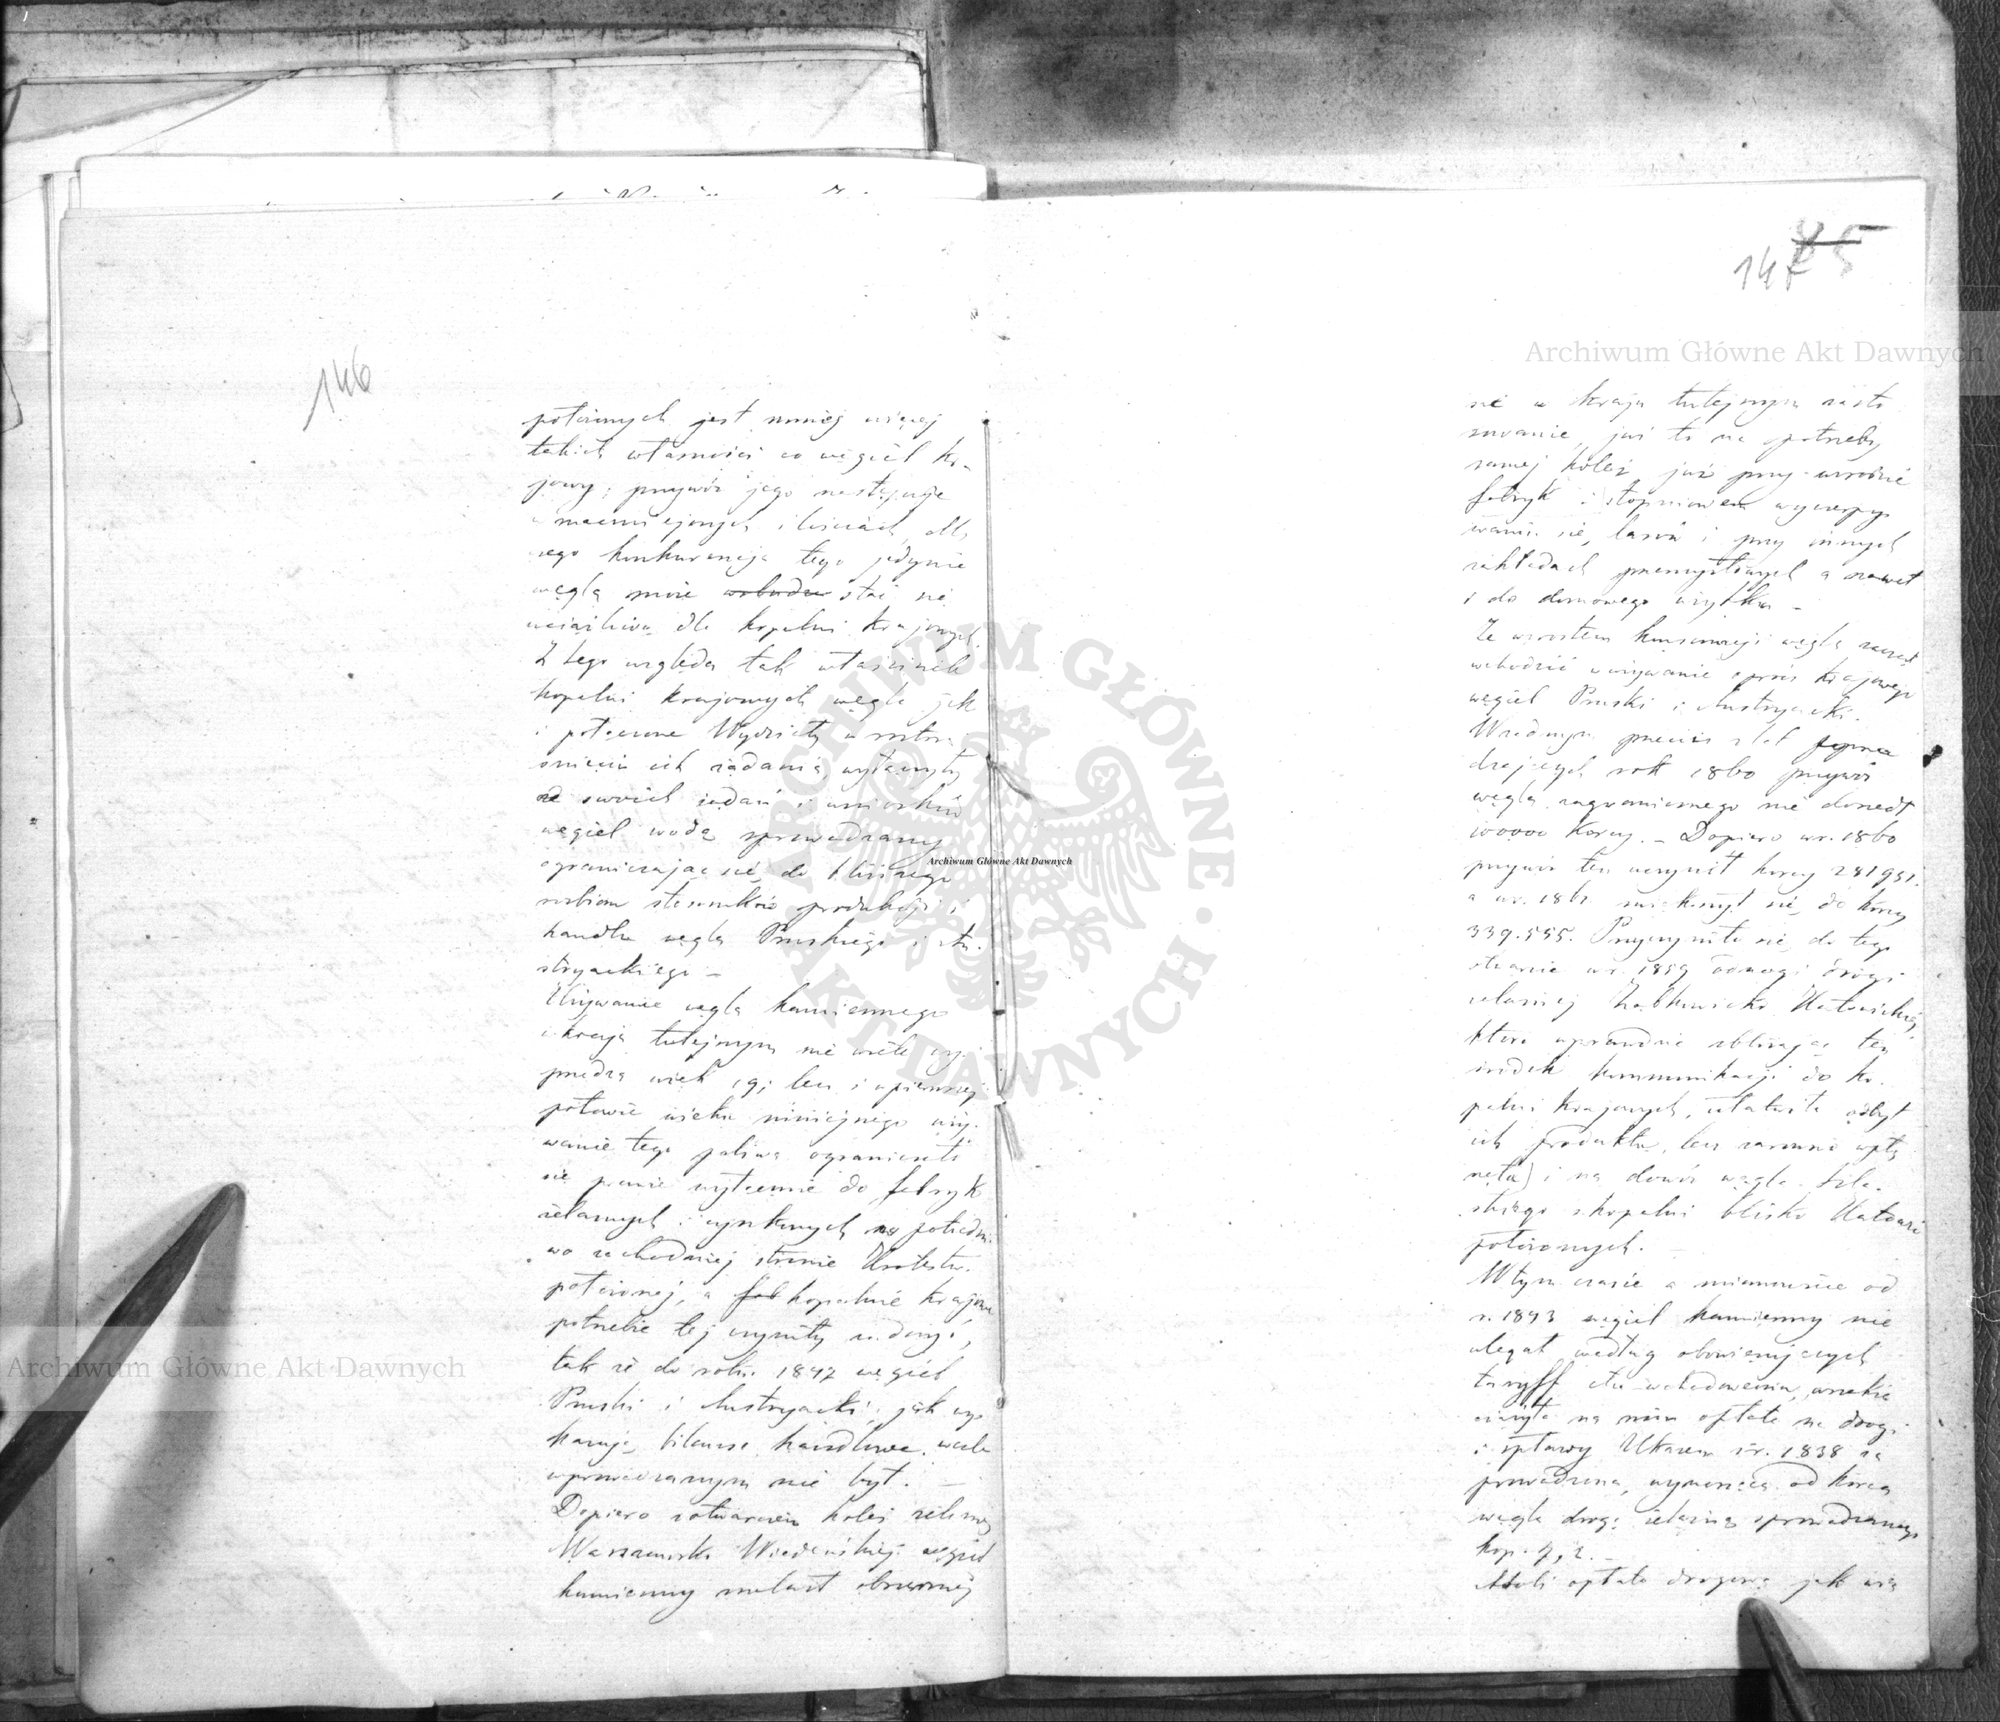 146
położonych jest mniej więcej
takich własności co węgiel kra-
jowy; przywóz jego następuje
w maemniejszych ilościach, dla
czego konkurencja tego jedynie
węgla może stać się
uciążliwą dla kopalni krajowych
Z tego względu tak właściciele
kopalni krajowych węgla jak
i połączone Wydziały w roztrzą
śnieniu ich żądania, wyłączyły
ze swoich żądań i wniosków
węgiel wodą sprowadzany
ograniczając się do bliższego
rozbioru stosunków produkcji i
handlu węgla Pruskiego i Au-
stryackiego –
Używanie węgla kamiennego
w kraju tutejszym nie wiele wy-
przedza wiek 19; lecz i w pierwszej
połowie wieku niniejszego uży-
wanie tego paliwa ograniczało
się prawie wyłącznie do fabryk
żelaznych i cynkowych na południo
wo zachodniej stronie Królestwa
położonej, a fab kopalnie krajowe
potrzebie tej czyniły zadosyć,
tak że do roku 1847 węgiel
Pruski i Austryacki, jak wy
kazują bilanse handlowe, wcale
wprowadzanym nie był. –
Dopiero z otwarciem kolei żelaznej
Warszawsko Wiedeńskiej węgiel
kamienny znalazł obszerniej
85
147
sze w kraju tutejszym zasto
sowanie, już to na potrzeby
samej kolei, już przy wzroście
fabryk i stopniowem wyczerpy
waniu się lasów i przy innych
zakładach przemysłowych a nawet
i do domowego użytku –
Ze wzrostem konsumcji węgla zaczął
wchodzić w używanie oprócz krajowego
węgiel Pruski i Austryacki.
W żadnym przecież z lat poprze
dzających rok 1860 przywóz
węgla zagranicznego nie doszedł
100000 Korcy. – Dopiero w r. 1860
przywóz ten uczynił korcy 281951.
a w r. 1861 zwiększył się do korcy
339.555. Przyczyniło się do tego
otwarcie w r. 1859 odnogi drogi
żelaznej Ząbkowicko Katowickiej,
która wprawdzie zbliżając ten
środek kommunikacji do ko-
palni krajowych, ułatwiła odbyt
ich produktu, lecz zarazem wpły
nęła i na dowóz węgla Szlą-
skiego z kopalni blisko Katowic
położonych.
W tym czasie a mianowicie od
r. 1843 węgiel kamienny nie
ulegał według obowiązujących
taryff cłu wchodowemu, wszakże
ciążyła na nim opłata na drogi
i spławy Ukazem z r. 1838 za
prowadzona, wynosząca od korca
węgla drogą żelazną sprowadzanego
kop. 7,2. –
Jeżeli opłata drogowa jak wię
Archiwum Główne Akt Dawnych
Archiwum Główne Akt Dawnych
Archiwum Główne Akt Dawnych
ARCHIWUM GŁÓWNE AKT DAWNYCH